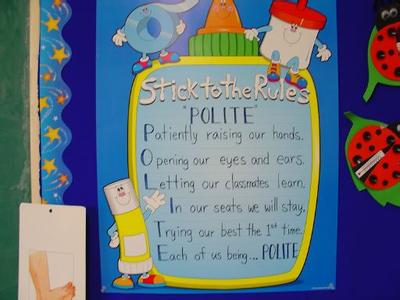 Stick to the Rules
"POLITE"
Patiently raising our hands.
Opening our eyes and ears.
Letting our classmates learn.
In our seats we will stay.
Trying our best the 1st time.
Each of us being... POLITE